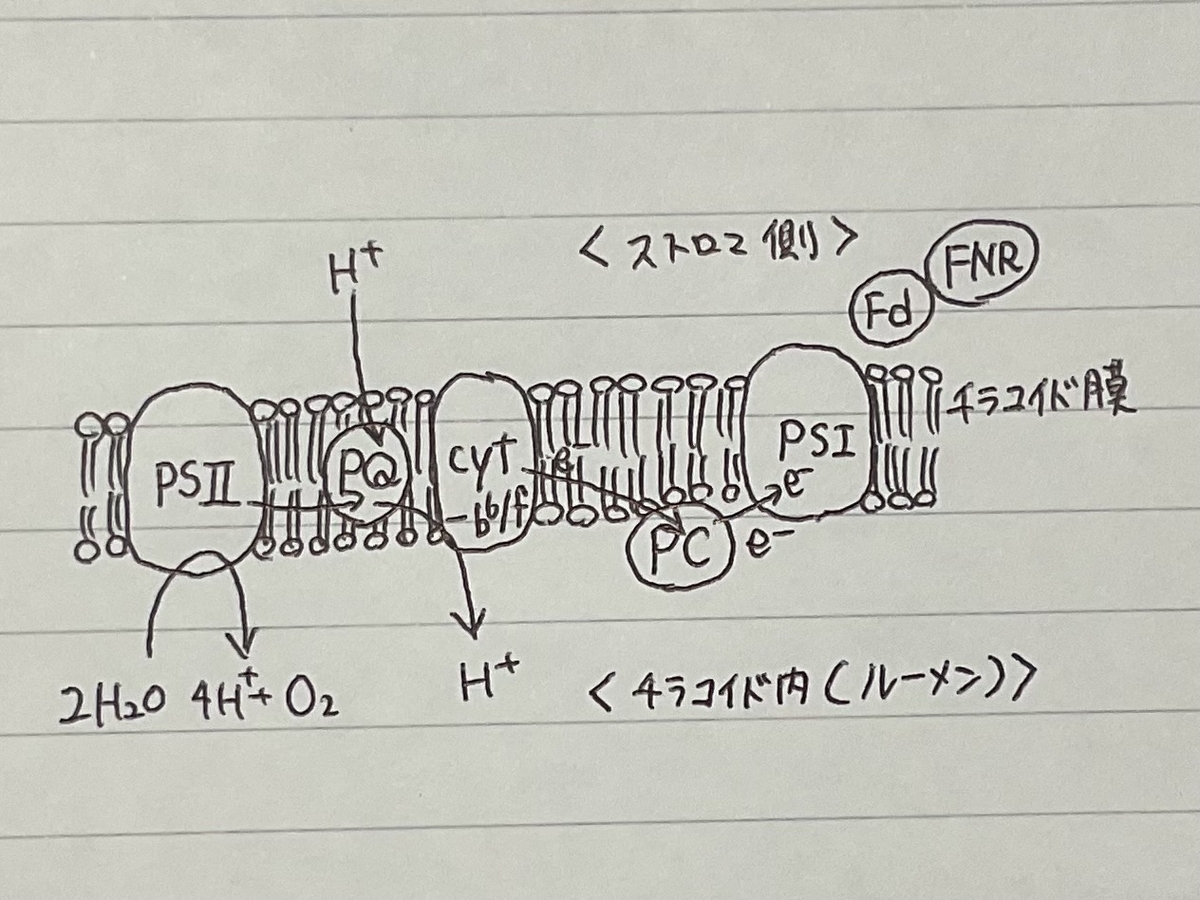 H⁺
<ストロマ側>
FNR
Fd
チラコイド膜
PSII
PQ
cyt
b6/f
e⁻
PSI
e⁻
PC
e⁻
2H₂O 4H⁺+ O₂
H⁺
<チラコイド内(ルーメン)>